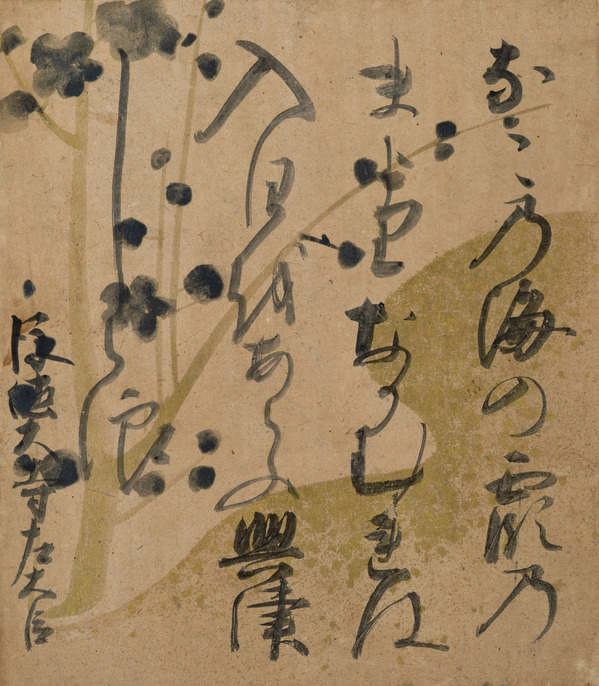 なこ乃海の霞乃
まよりなかむれは
入日越あらふ興津
しら浪
後徳大寺左大臣